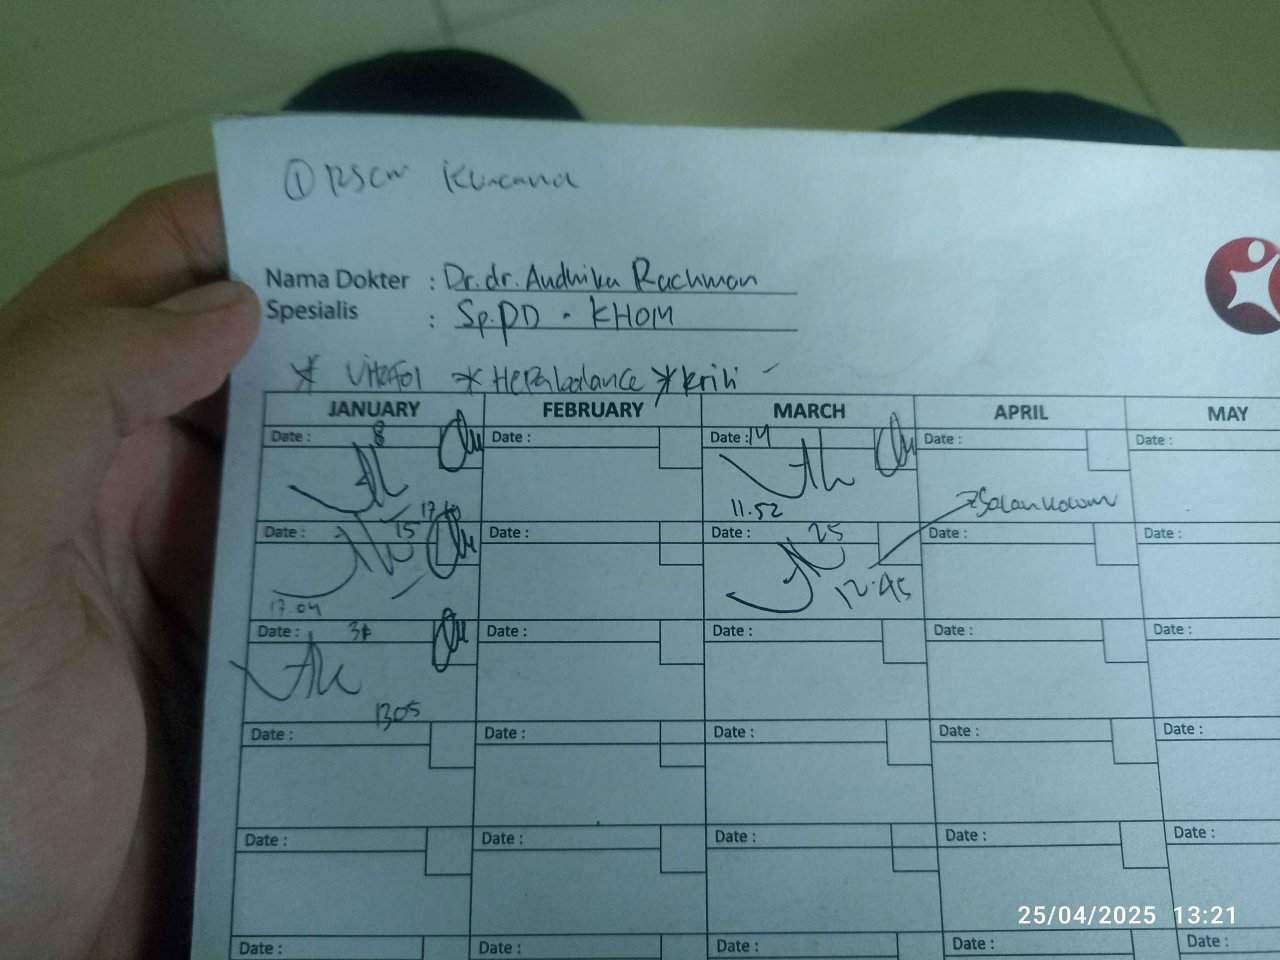 ① RSCM Kencana
Nama Dokter : Dr. dr. Andhika Rachman
Spesialis : Sp.PD - KHOM
* * Hepabalance *
JANUARY FEBRUARY MARCH APRIL MAY
Date : 8 Date : Date : 14 Date : Date :
11.52
Date : 15 Date : Date : 25 Date : Date :
17.04 12.45
Date : 31 Date : Date : Date : Date :
13.05
Date : Date : Date : Date : Date :
Date : Date : Date : Date : Date :
Date : Date : Date : Date : Date :
25/04/2025 13:21